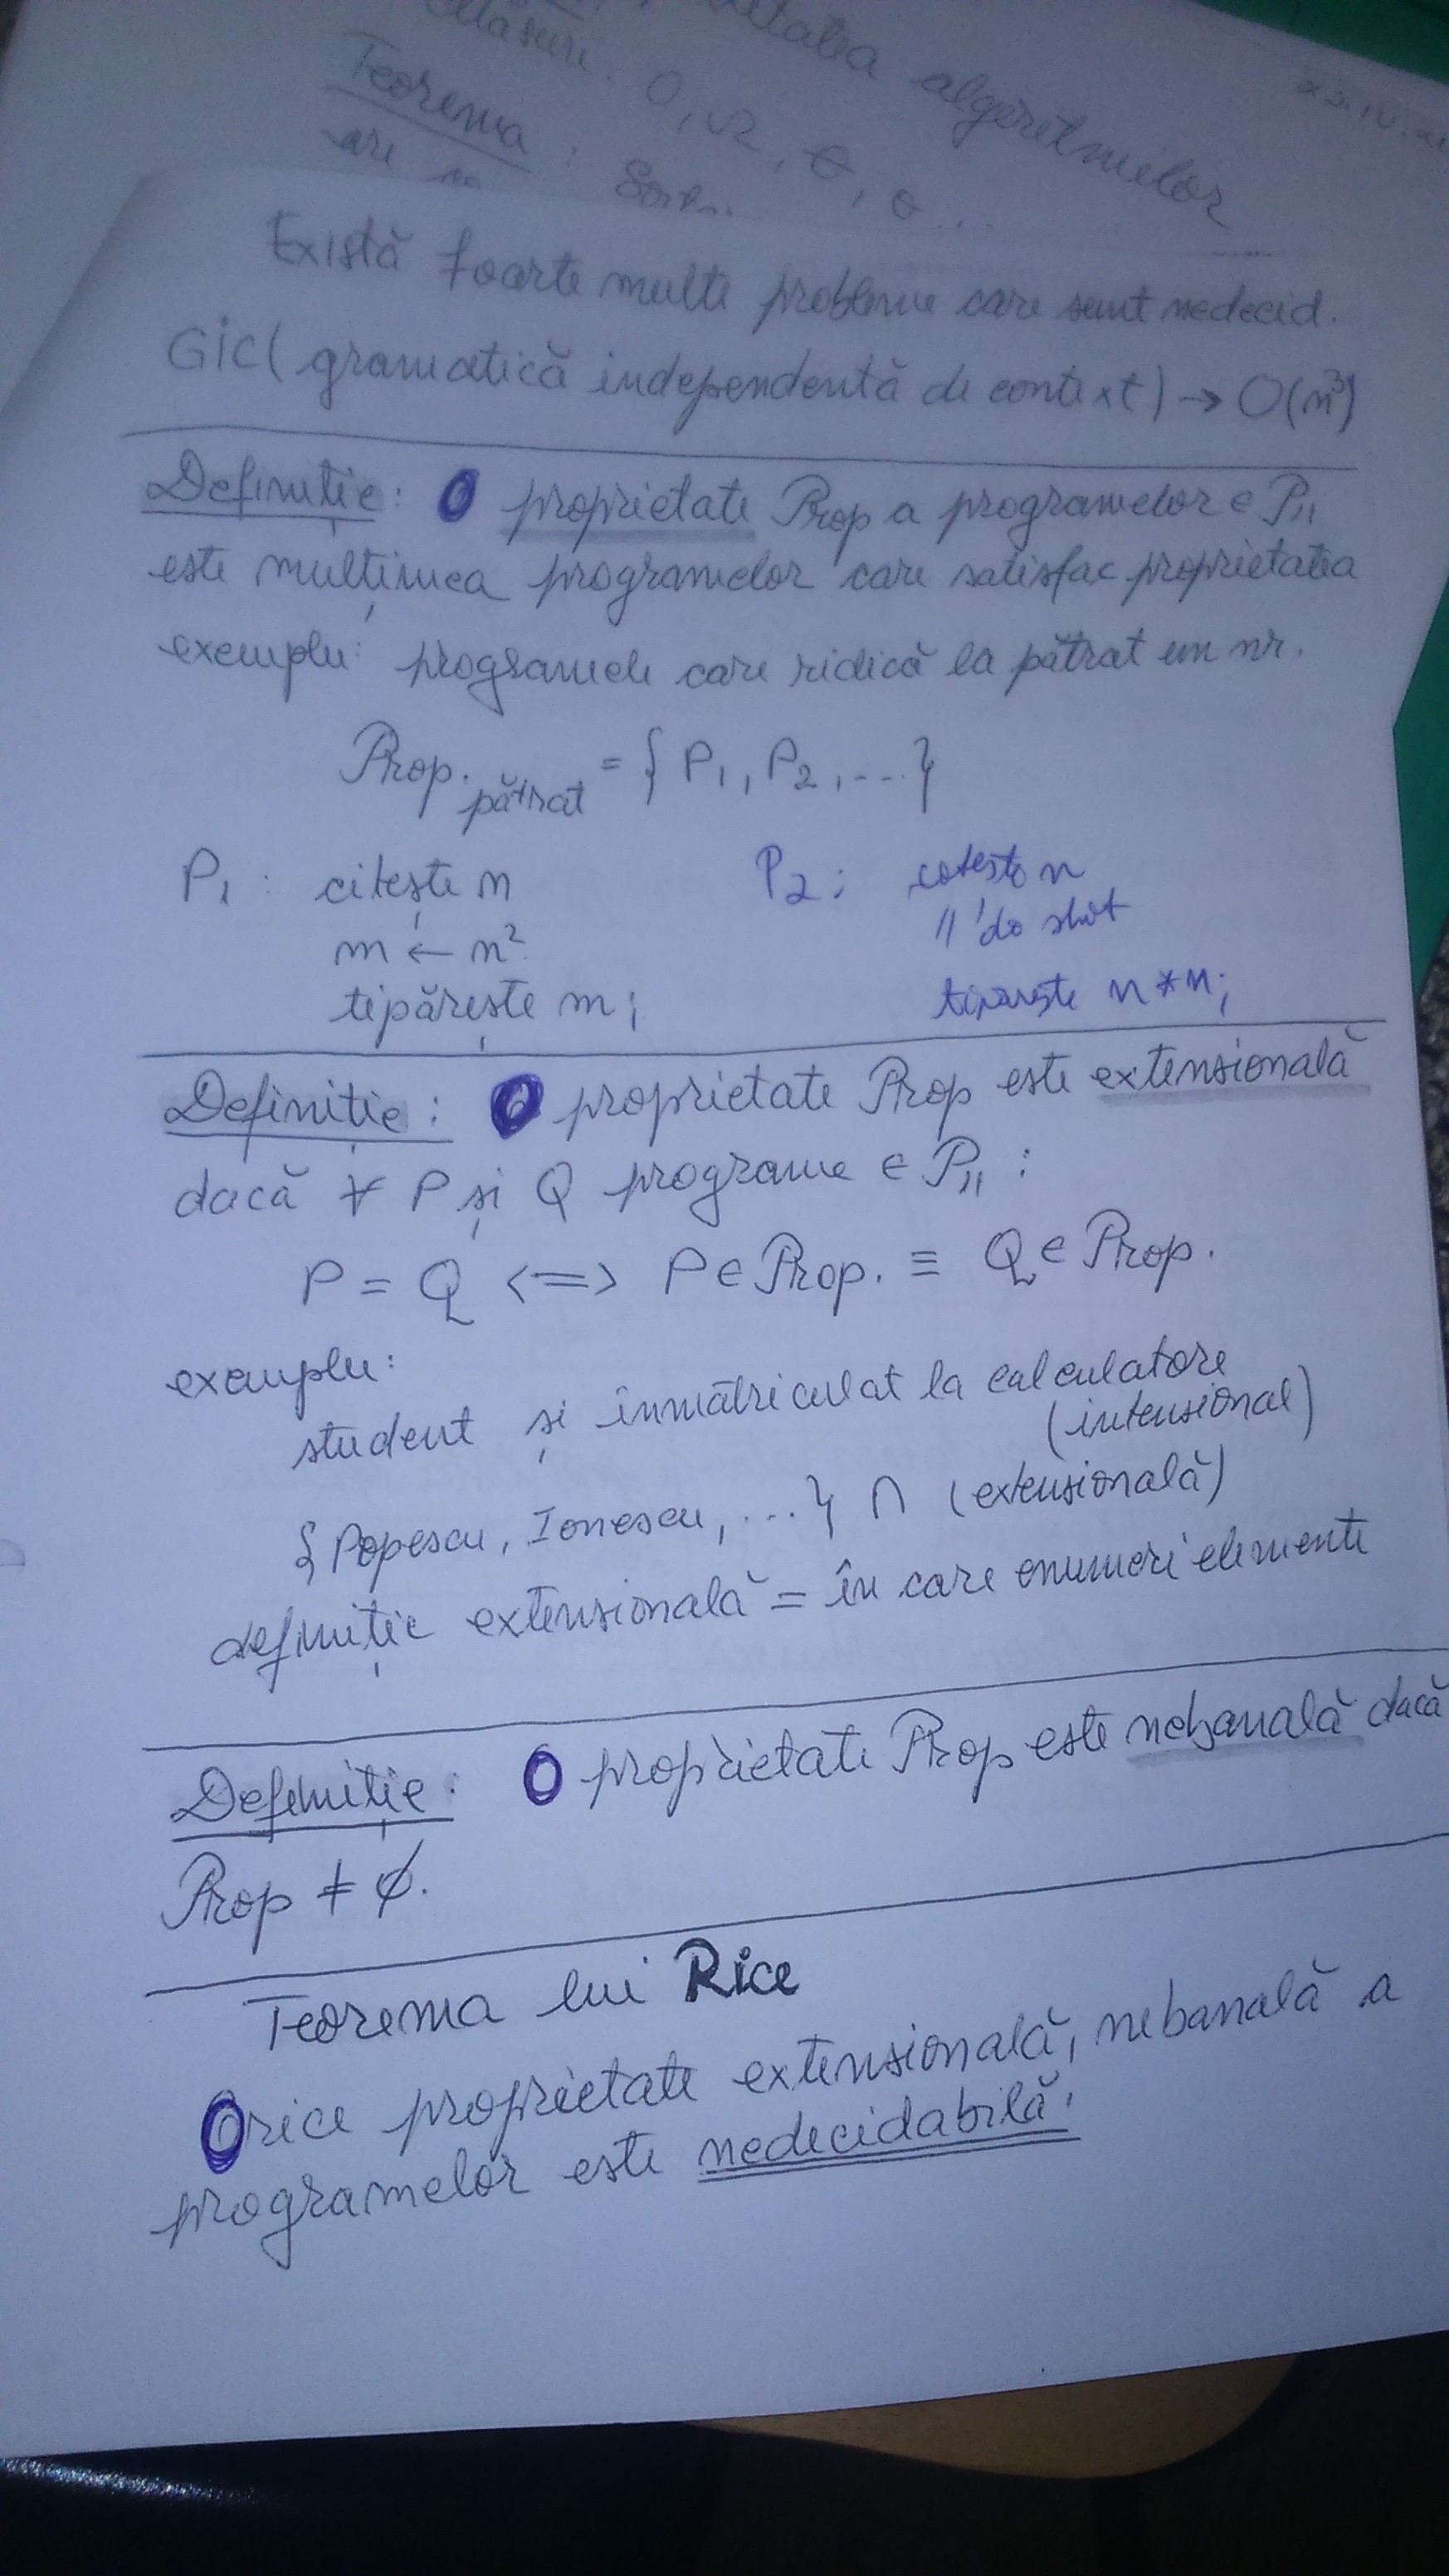 algoritmilor
O, Ω, Θ, o ...
Teorema :
are
Există foarte multe probleme care sunt nedecid.
GiC( gramatică independentă de context) → O(n³)
Definiție: O proprietate Prop a programelor ∈ P11
este mulțimea programelor care satisfac proprietatea
exemplu: programele care ridică la pătrat un nr.
Prop.pătrat = { P1, P2, ... }
P1 : citește n
m ← n²
tipărește m;
P2 : citește n
// do
tipărește n*n;
Definitie : O proprietate Prop este extensională
dacă ∀ P și Q programe ∈ P11 :
P = Q <=> P ∈ Prop. ≡ Q ∈ Prop.
exemplu:
student și înmatriculat la calculatore
(intensional)
{ Popescu, Ionescu, ... } ∩ (extensională)
definiție extensională = în care enumeri elemente
Definiție: O proprietate Prop este nebanală dacă
Prop ≠ ∅.
Teorema lui Rice
Orice proprietate extensională, nebanală a
programelor este nedecidabilă.